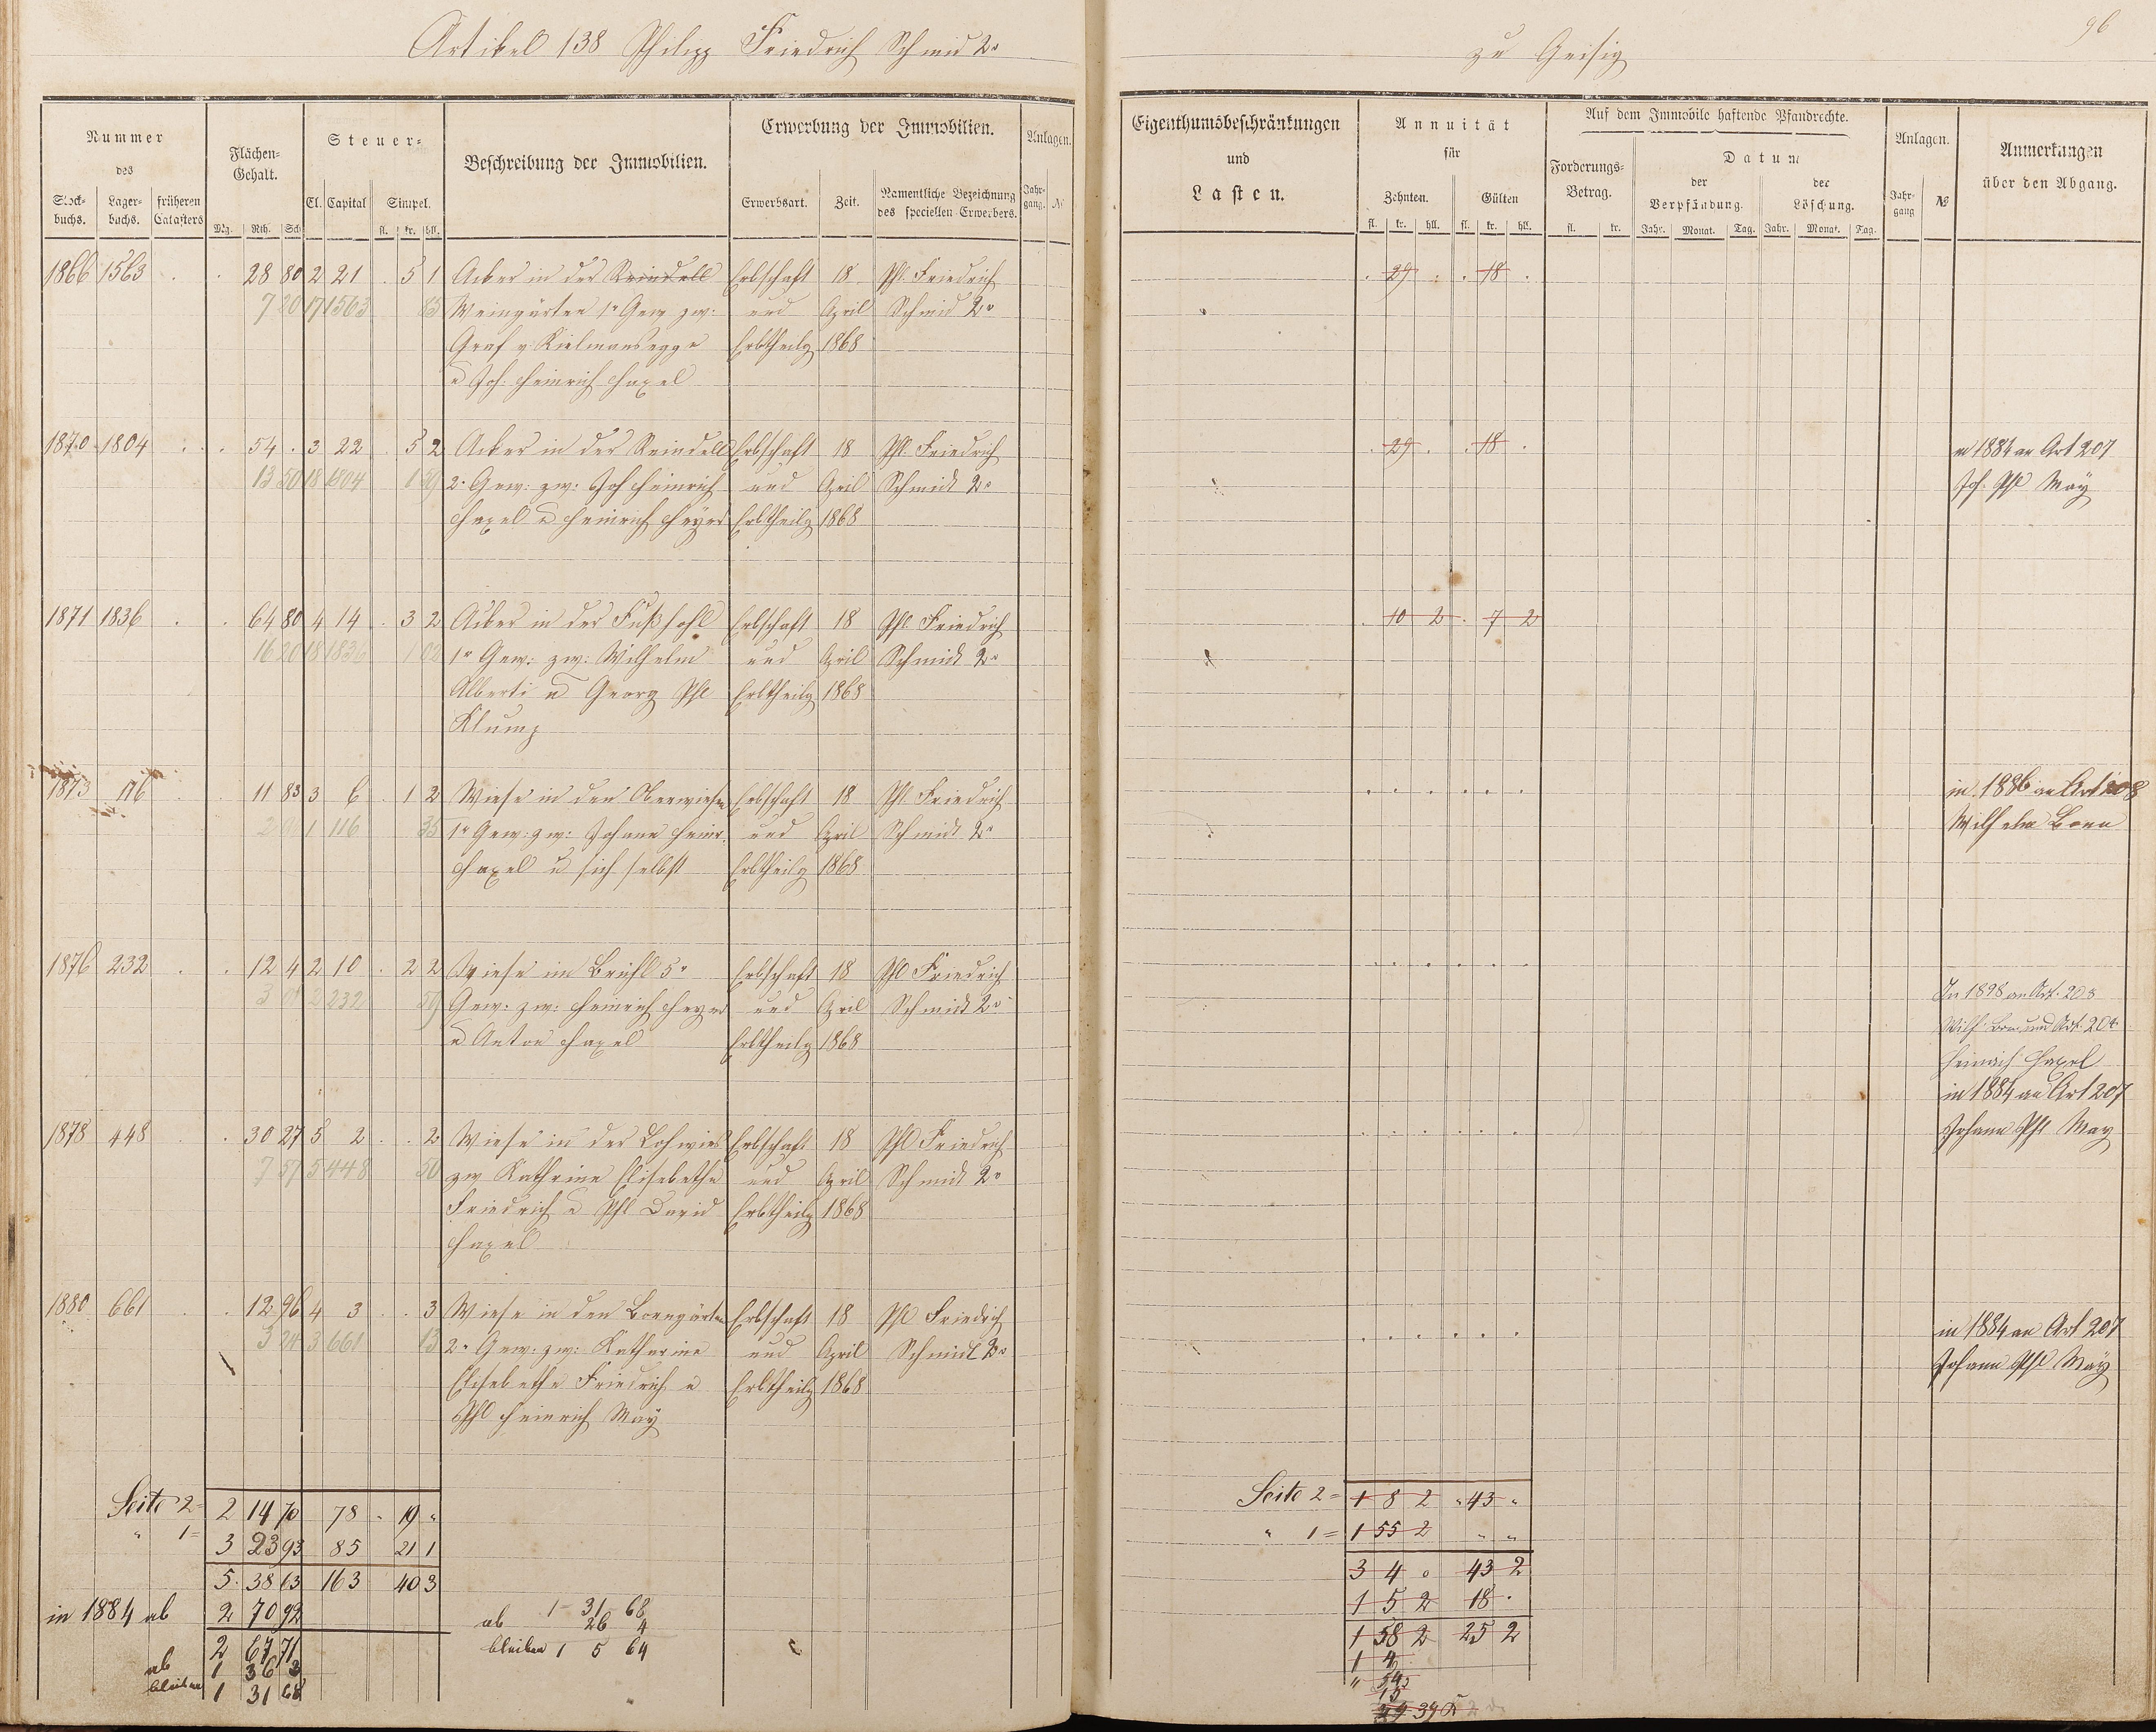 Artikel 138 Philipp Friedrich Schmid 2r
zu Geisig
96
Nummer
des
Stock-buchs. Lager-buchs. früheren Catasters
Flächen-Gehalt.
Mg. Rth. Sch.
Steuer-
Cl. Capital Simpel.
fl. kr. hll.
Beschreibung der Immobilien.
Erwerbung der Immobilien.
Erwerbsart. Zeit. Namentliche Bezeichnung des speciellen Erwerbers.
Anlagen.
Jahr-gang. №
Eigenthumsbeschränkungen
und
Lasten.
Annuität
für
Zehnten. Gülten
fl. kr. hll. fl. kr. hll.
Auf dem Immobile haftende Pfandrechte.
Forderungs-Betrag.
fl. kr.
Datum
der Verpfändung. der Löschung.
Jahr. Monat. Tag. Jahr. Monat. Tag.
Anlagen.
Jahr-gang №
Anmerkungen
über den Abgang.
1866 1563 . . 28 80 2 21 . 5 1 Acker in der Reindell Erbschaft 18 Phl. Friedrich . 29 . . 18 .
7 20 17 1563 83 Weingärten 1r Gew zw: und April Schmid 2r
Graf v Kielmansegge Erbtheilg 1868
u Joh. Heinrich Haxel
1870 1804 . . 54 . 3 22 . 5 2 Acker in der Reindell Erbschaft 18 Phl. Friedrich . 29 . . 18 . in 1884 an Art 207
13 50 18 1804 1 59 2r Gew: zw: Joh Heinrich und April Schmidt 2r Joh. Phl May
Haxel u Heinrich Heyer Erbtheilg 1868
1871 1836 . . 64 80 4 14 . 3 2 Acker in der Fußsohl Erbschaft 18 Phl Friedrich . 10 2 . 7 2
16 20 18 1836 1 02 1r Gew: zw: Wilhelm und April Schmidt 2r
Alberti u Georg Phl Erbtheilg 1868
Klump
1873 116 . . 11 83 3 6 . 1 2 Wiese in den Oberwiesen Erbschaft 18 Phl Friedrich . . . . . . in 1886 an Art 208
1 116 35 1r Gew: zw: Johann Heinr. und April Schmidt 2r Wilhelm Bonn
Haxel u sich selbst Erbtheilg 1868
1876 232 . . 12 4 2 10 . 2 2 Wiese im Brühl 5r Erbschaft 18 Phl Friedrich . . . . . .
3 01 2 232 59 Gew: zw: Heinrich Heyer und April Schmidt 2r In 1898 an Art. 208
u Anton Haxel Erbtheilg 1868 Wilh. Bonn und Art. 204
Heinrich Haxel
in 1884 an Art 207
1878 448 . . 30 27 5 2 . . 2 Wiese in der Lohwies Erbschaft 18 Phl Friedrich . . . . . . Johann Phl May
7 57 5 448 50 zw Kathrine Elisabethe und April Schmidt 2r
Friedrich u Phl David Erbtheilg 1868
Haxel
1880 661 . . 12 96 4 3 . . 3 Wiese in den Borngärten Erbschaft 18 Phl Friedrich . . . . . . in 1884 an Art 207
3 24 3 661 13 2r Gew: zw: Katharine und April Schmidt 2r Johann Phl May
Elisabethe Friedrich u Erbtheilg 1868
Phl Heinrich May
Seite 2= 2 14 70 78 " 19 " Seite 2= 1 8 2 " 43 "
" 1= 3 23 93 85 21 1 " 1= 1 55 2 " "
5 38 63 163 40 3 3 4 0 43 2
in 1884 ab 2 70 92 ab 1 31 68 1 5 2 18 .
26 4
2 67 71 bleiben 1 5 64 1 58 2 25 2
ab 1 36 3 1 4
bleiben 1 31 68 " 54
15
39